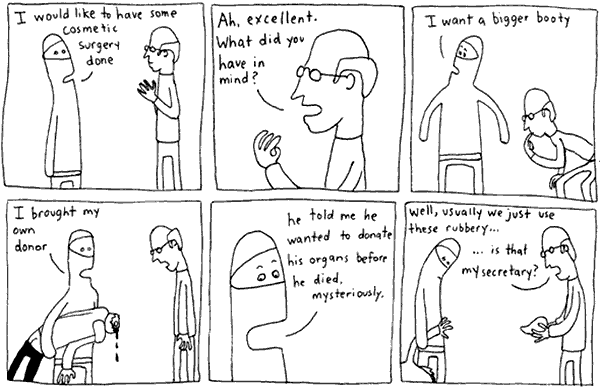 I would like to have some
cosmetic
surgery
done
Ah, excellent.
What did you
have in
mind?
I want a bigger booty
I brought my
own
donor
he told me he
wanted to donate
his organs before
he died,
mysteriously.
Well, usually we just use
these rubbery...
... is that
my secretary?